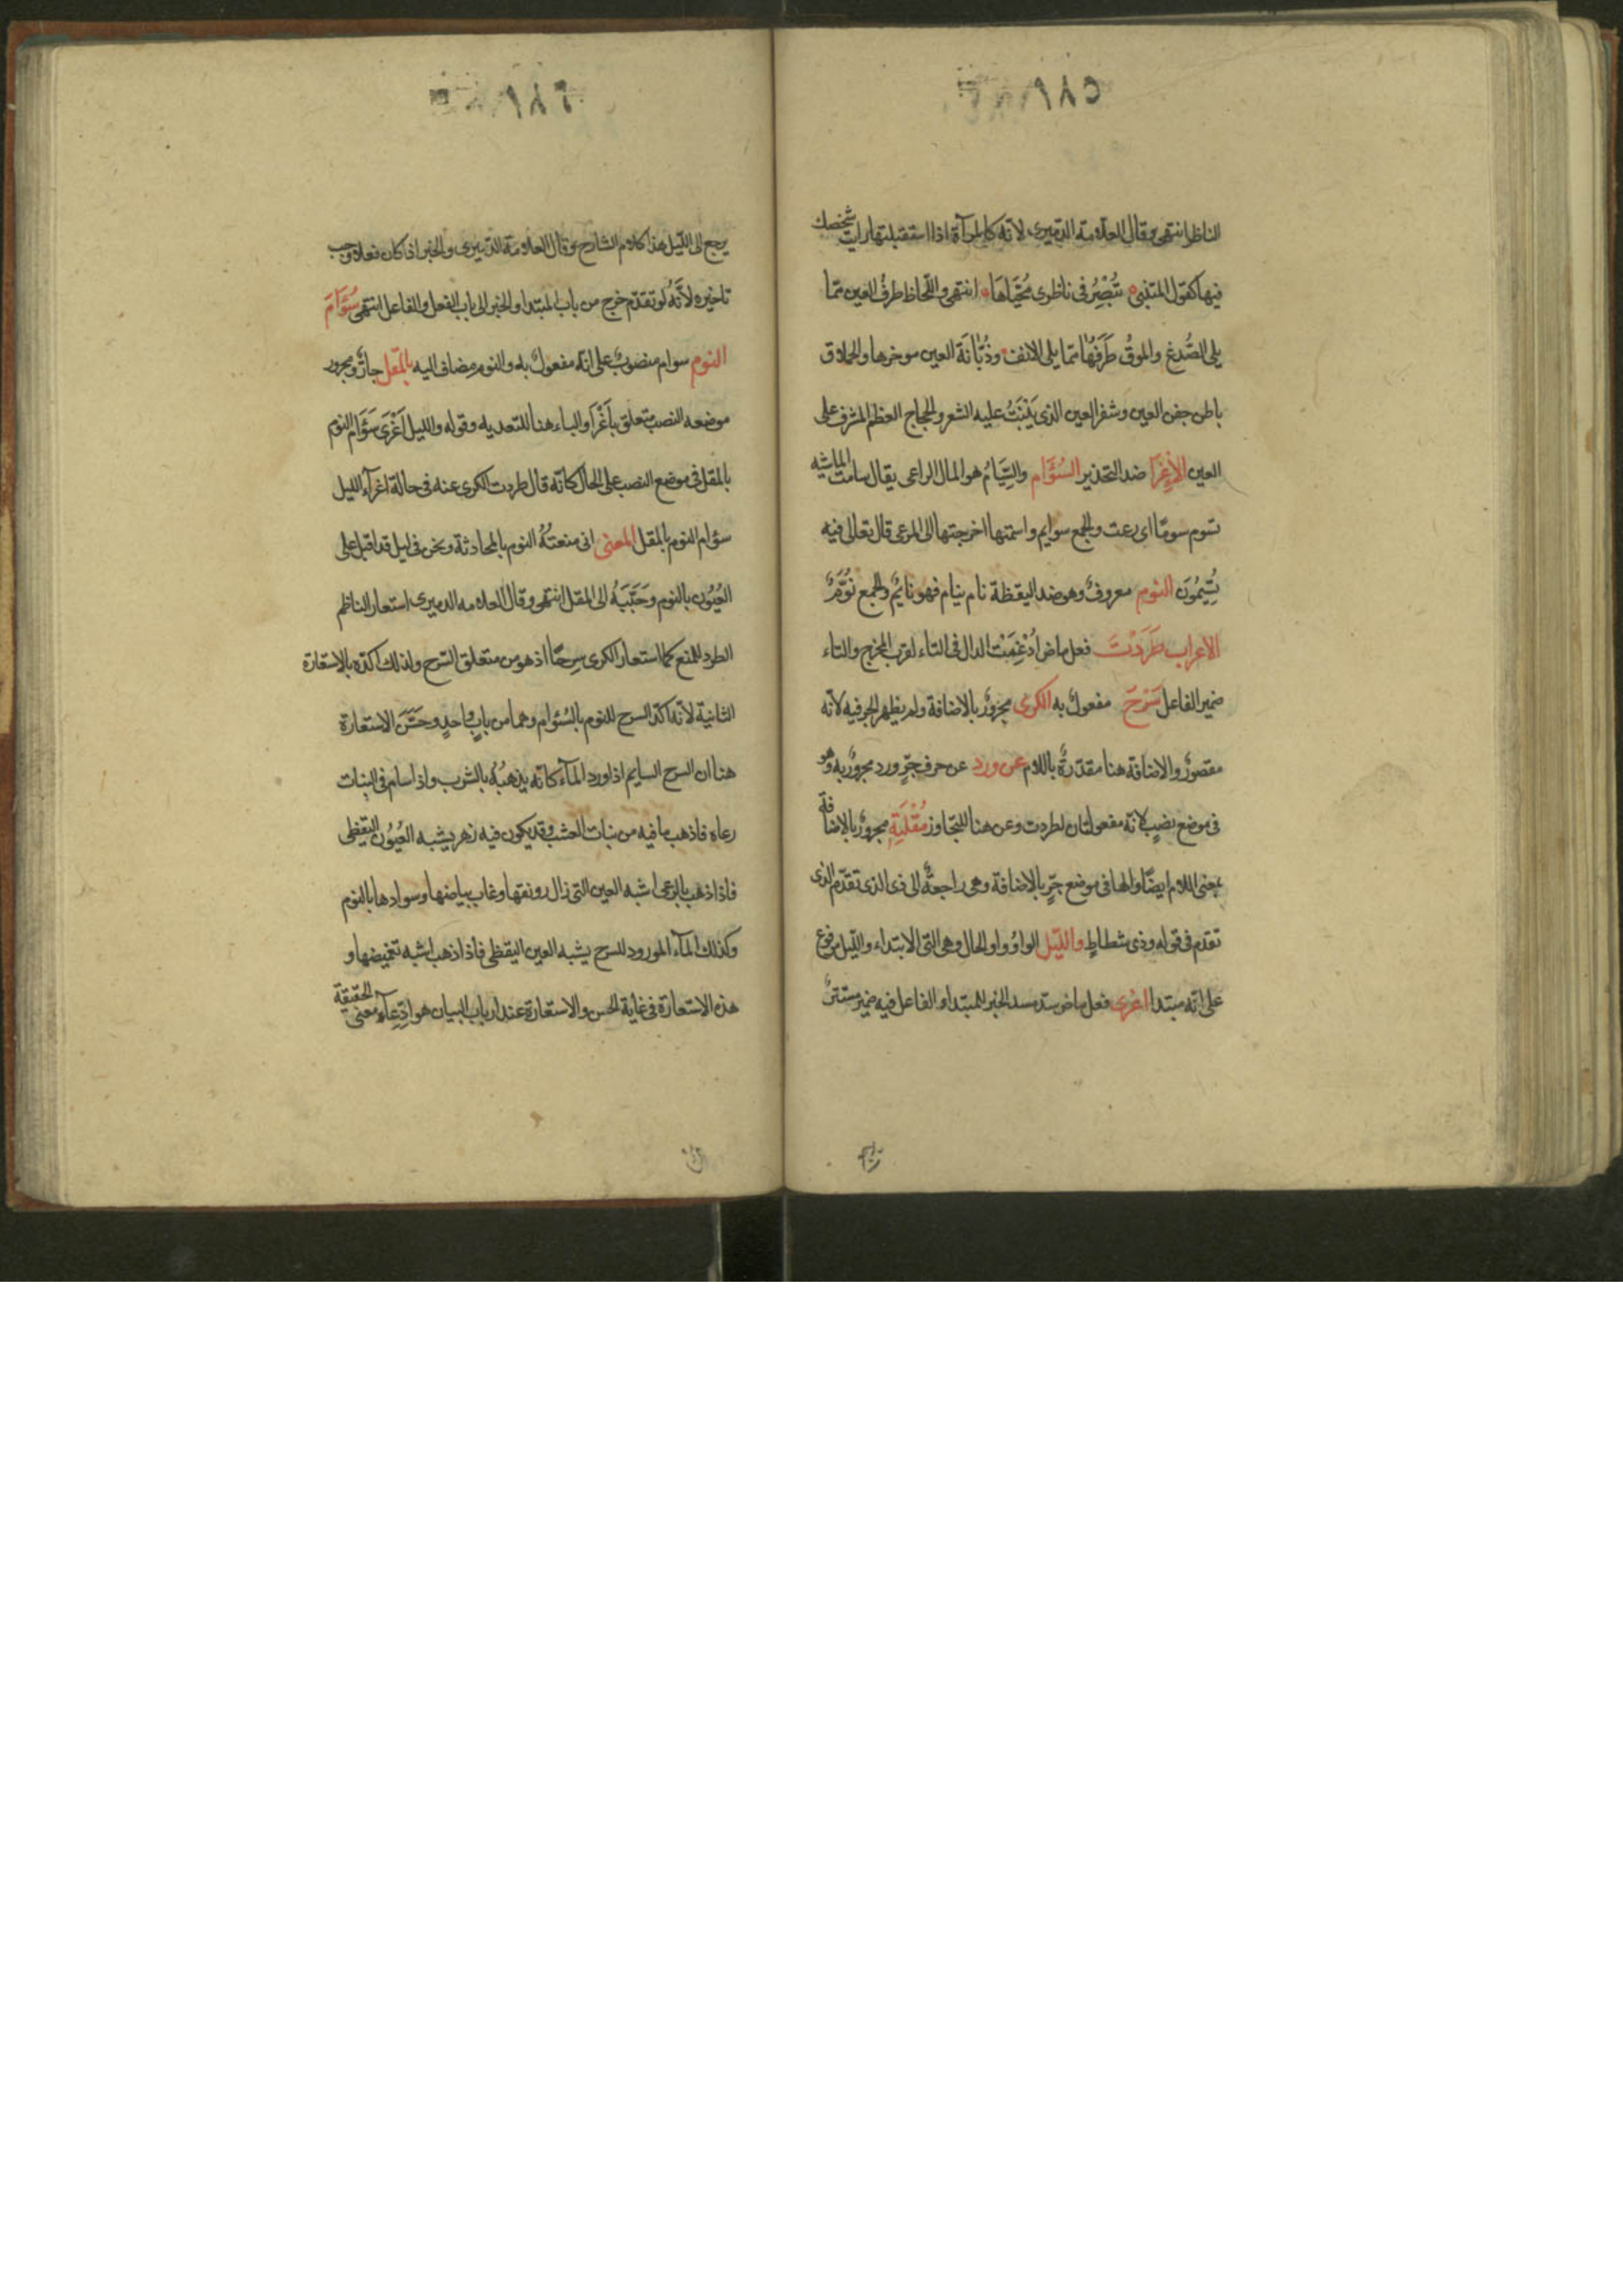 الناظر انتهى وقال العلامة الدميرى لانه كالمرآة اذا استقبلتها رايت شخصك
فيها كقول المتنبى تُبْصِرُ فى ناظرى مُحَيَّاهَا انتهى واللحاظ طرف العين مما
يلى الصُّدغ والموقُ طَرَفهُا مما يلى الانف وذُبَّانَة العين موخرها والحملاق
باطن جفن العين وشفر العين الذى يَنْبَتُ عليه الشعر والحجاج العظم المشرف على
العين الأِغْرَا ضد التحذير السُّوَّام والسِّيَامُ هو المال الراعى يقال سامت الماشيه
تسوم سومًا اى رعت والجمع سوايم واسمتها اخرجتها الى المرعى قال تعالى فيه
تُسِيمُونَ النوم معروفٌ وهو ضد اليقظة نام ينام فهو نايمٌ والجمع نُوَّمٌ
الاعراب طَرَدْتَ فعل ماض اُدْغِمَتْ الدال فى التاء لقرب المخرج والتاء
ضمير الفاعل سَرْحَ مفعولٌ به الكرى مجرورٌ بالاضافة ولم يظهر الجر فيه لانه
مقصورٌ والاضافة هنا مقدّرةٌ باللام عن ورد عن حرف جرٍّ ورد مجرورٌ به وهو
فى موضع نصبٍ لانه مفعول ثان لطردت وعن هنا للتجاوز مُقْلَتِهِ مجرورٌ بالاضافة
بمعنى اللام ايضًا والها فى موضع جرٍّ بالاضافة وهى راجعةٌ الى ذى الذى تقدّم الذى
تقدم فى قوله وذى شطاطٍ والليل الواوُ واو الحال وهى التى الابتداء والليل مرفوع
على انه مبتدا اغرى فعل ماض سد مسد الخبر للمبتدا والفاعل فيه ضمير مستترٌ
يرجع الى الليل هذا كلام الشارح وقال العلامة الدميرى والخبر اذا كان فعلا وجب
تاخيره لاَنَّهُ لو تقدّم خرج من باب المبتدا والخبر الى باب الفعل والفاعل انتهى سُوَّامَ
النوم سوام منصوبٌ على انه مفعولٌ به والنوم مضاف اليه بالمقل جارٌّ ومجرور
موضعه النصب متعلق بأَغْرَا والباء هنا للتعديه وقوله والليل اَغْرَى سَوَّام النوم
بالمقل فى موضع النصب على الحال كانّه قال طردت الكرى عنه فى حالة اغرآء الليل
سؤام النوم بالمقل المعنى انى منعتُهُ النوم بالمحادثة ونحن فى ليل قد اقبل على
العُيُون بالنوم وحَبَّبَهُ الى المقل انتهى وقال العلامه الدميرى استعار الناظم
الطرد للمنع كما استعار الكرى سرحًا اذ هو من متعلق السّرح ولذلك اكدّه بالاستعارة
الثانية لانه اكدّ السرح للنوم بالسُوام وهما من بابٍ واحدٍ وحَسَّنَ الاستعارة
هنا ان السرح السايم اذا ورد المآء كانّه يذهبُهُ بالشرب واذا سام فى النبات
رعاه فاذهب ما فيه من نبات العشب وقد يكون فيه زهر يشبه العُيُون اليقظى
فاذا ذهب بالرعى اشبه العين التى زال رونقها وغاب بياضها وسوادها بالنوم
وكذلك المآء المورود للسرح يشبه العين اليقظى فاذا ذهب اشبه تغميضها و
هذه الاستعارة فى غاية الحسن والاستعارة عند ارباب البيان هو ادِّعآء معنى الحقيقة